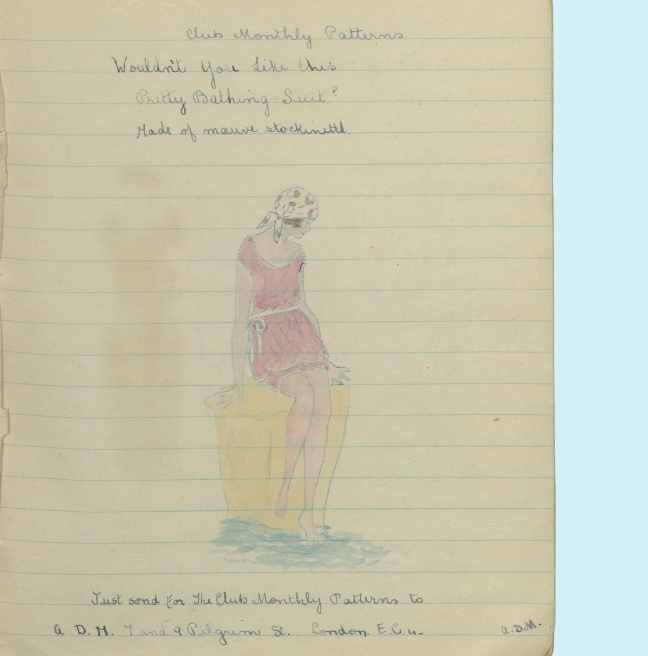 Club Monthly Patterns
Wouldn't You Like this
Pretty Bathing-Suit?
Made of mauve stockinette.
Just send for The Club Monthly Patterns to
A. D. M. 7 and 9 Pilgrim St. London. E.C.4.
A.D.M.